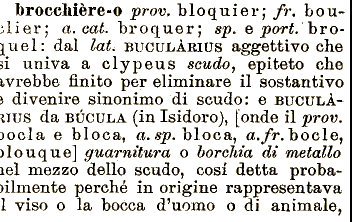 brocchière-o prov. bloquier; fr. bou-
clier; a. cat. broquer; sp. e port. bro-
quel: dal lat. BUCULÀRIUS aggettivo che
si univa a clypeus scudo, epiteto che
avrebbe finito per eliminare il sostantivo
e divenire sinonimo di scudo: e BUCULÀ-
RIUS da BÚCULA (in Isidoro), [onde il prov.
bocla e bloca, a. sp. bloca, a. fr. bocle,
blouque] guarnitura o borchia di metallo
nel mezzo dello scudo, cosí detta proba-
bilmente perché in origine rappresentava
il viso o la bocca d'uomo o di animale,